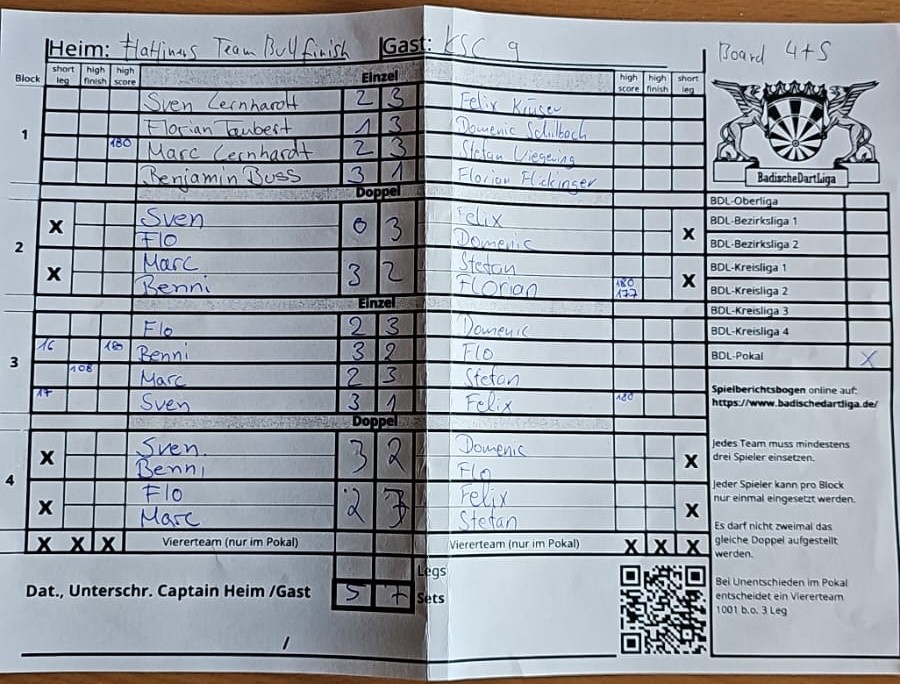 Heim: Hatfiners Team Bullfinish Gast: KSC 9 Board 4+5
Block short leg high finish high score Einzel high score high finish short leg
1
Sven Lernhardt 2 3 Felix Krüger
Florian Taubert 1 3 Domenic Schilbach
180 Marc Lernhardt 2 3 Stefan Wiegering
Benjamin Buss 3 1 Florian Flickinger
BadischeDartLiga
Doppel
2
X Sven 0 3 Felix X
Flo Domenic
X Marc 3 2 Stefan X
Benni Florian 180 177
Einzel
3
Flo 2 3 Domenic
16 180 Benni 3 2 Flo
108 Marc 2 3 Stefan
17 Sven 3 1 Felix 180
Doppel
4
X Sven 3 2 Domenic X
Benni Flo
X Flo 2 3 Felix X
Marc Stefan
X X X Viererteam (nur im Pokal) Viererteam (nur im Pokal) X X X
Legs
Dat., Unterschr. Captain Heim /Gast 5 7 Sets
/
BDL-Oberliga
BDL-Bezirksliga 1
BDL-Bezirksliga 2
BDL-Kreisliga 1
BDL-Kreisliga 2
BDL-Kreisliga 3
BDL-Kreisliga 4
BDL-Pokal X
Spielberichtsbogen online auf:
https://www.badischedartliga.de/
Jedes Team muss mindestens
drei Spieler einsetzen.
Jeder Spieler kann pro Block
nur einmal eingesetzt werden.
Es darf nicht zweimal das
gleiche Doppel aufgestellt
werden.
Bei Unentschieden im Pokal
entscheidet ein Viererteam
1001 b.o. 3 Leg